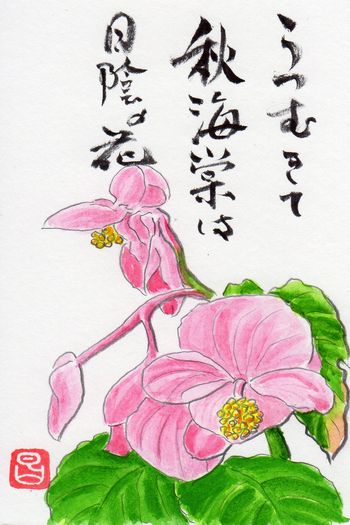 うつむきて
秋海棠は
日陰の花